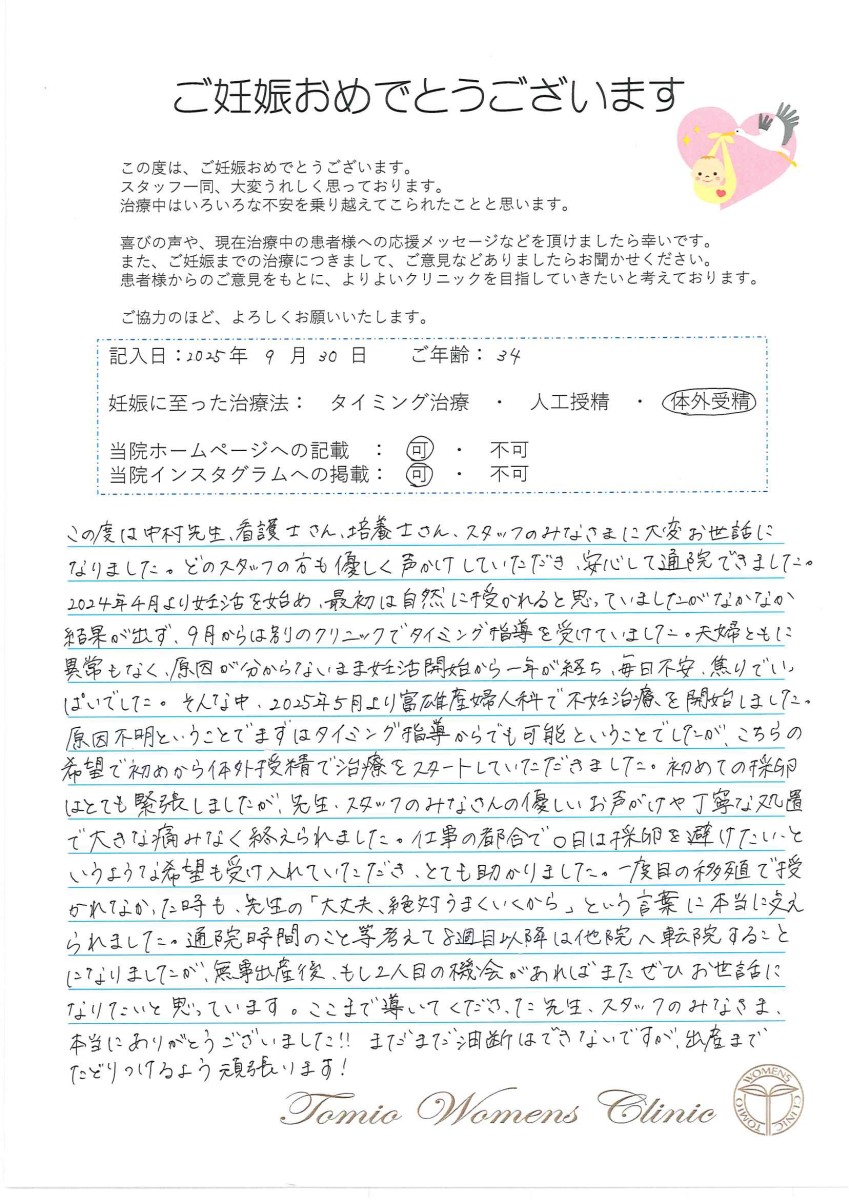 ご妊娠おめでとうございます
この度は、ご妊娠おめでとうございます。
スタッフ一同、大変うれしく思っております。
治療中はいろいろな不安を乗り越えてこられたことと思います。
喜びの声や、現在治療中の患者様への応援メッセージなどを頂けましたら幸いです。
また、ご妊娠までの治療につきまして、ご意見などありましたらお聞かせください。
患者様からのご意見をもとに、よりよいクリニックを目指していきたいと考えております。
ご協力のほど、よろしくお願いいたします。
記入日：2025年 9 月 30 日 ご年齢： 34
妊娠に至った治療法： タイミング治療 ・ 人工授精 ・ 体外受精
当院ホームページへの記載 ： 可 ・ 不可
当院インスタグラムへの掲載： 可 ・ 不可
この度は中村先生、看護士さん、培養士さん、スタッフのみなさまに大変お世話に
なりました。どのスタッフの方も優しく声かけしていただき、安心して通院できました。
2024年4月より妊活を始め、最初は自然に授かれると思っていましたがなかなか
結果が出ず、9月からは別のクリニックでタイミング指導を受けていました。夫婦ともに
異常もなく、原因が分からないまま妊活開始から一年が経ち、毎日不安、焦りでいっ
ぱいでした。そんな中、2025年5月より富雄産婦人科で不妊治療を開始しました。
原因不明ということでまずはタイミング指導からでも可能ということでしたが、こちらの
希望で初めから体外授精で治療をスタートしていただきました。初めての採卵
はとても緊張しましたが、先生、スタッフのみなさんの優しいお声がけや丁寧な処置
で大きな痛みなく終えられました。仕事の都合で〇日は採卵を避けたいと
いうような希望も受け入れていただき、とても助かりました。一度目の移殖で授
かれなかった時も、先生の「大丈夫、絶対うまくいくから」という言葉に本当に支え
られました。通院時間のこと等考えて8週目以降は他院へ転院すること
になりましたが、無事出産後、もし2人目の機会があればまたぜひお世話に
なりたいと思っています。ここまで導いてくださった先生、スタッフのみなさま、
本当にありがとうございました!! まだまだ油断はできないですが、出産まで
たどりつけるよう頑張ります!
Tomio Womens Clinic
TOMIO WOMENS CLINIC